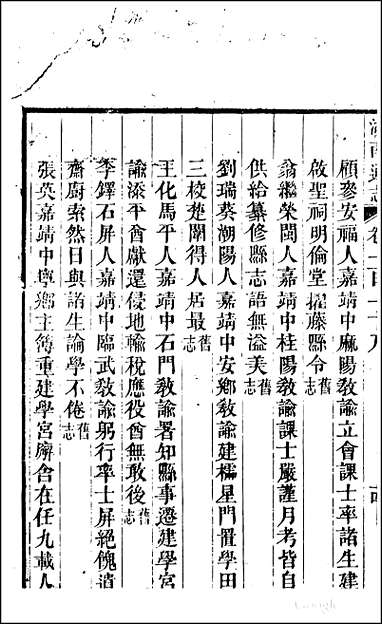 湖南通志 卷一百十九
顧麥安福人嘉靖中麻陽敎諭立會課士率諸生建
啟聖祠明倫堂擢藤縣令舊志
翁繼榮閩人嘉靖中桂陽敎諭課士嚴謹月考皆自
供給纂修縣志語無溢美舊志
劉瑞葵潮陽人嘉靖中安鄉敎諭建櫺星門置學田
三校楚闈得人居最舊志
王化馬平人嘉靖中石門敎諭署知縣事遷建學宮
諭添平酋獻還侵地輸稅應役酋無敢後舊志
李鐸石屏人嘉靖中臨武敎諭躬行率士屏絕餽遺
齋厨索然日與諸生論學不倦舊志
張英嘉靖中寧鄉主簿重建學宮廨舍在任九載人